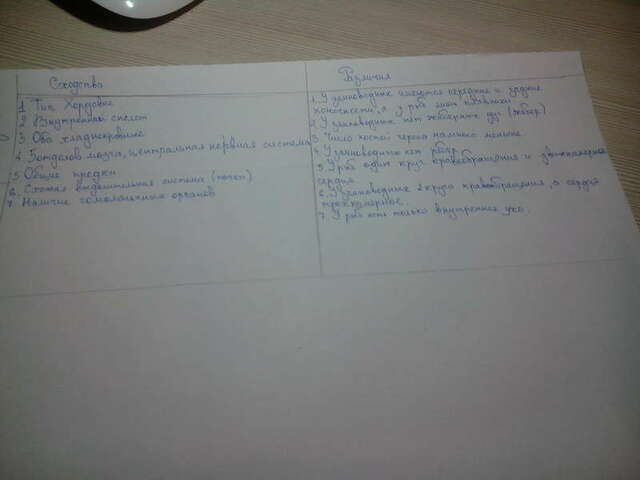 Сходства
1. Тип Хордовые
2. Внутренний скелет
3. Оба хладнокровные
4. 5 отделов мозга, центральная нервная система
5. Общие предки
6. Схожая выделительная система (почки)
7. Наличие гомологичных органов
Различия
1. У земноводных имеются передние и задние
конечности, а у рыб лишь плавники
2. У земноводных нет жаберных дуг (жабер)
3. Число костей черепа намного меньше
4. У земноводных нет рёбер
5. У рыб один круг кровообращения и двухкамерное
сердце
6. У земноводных 2 круга кровообращения, а сердце
трёхкамерное.
7. У рыб есть только внутреннее ухо.